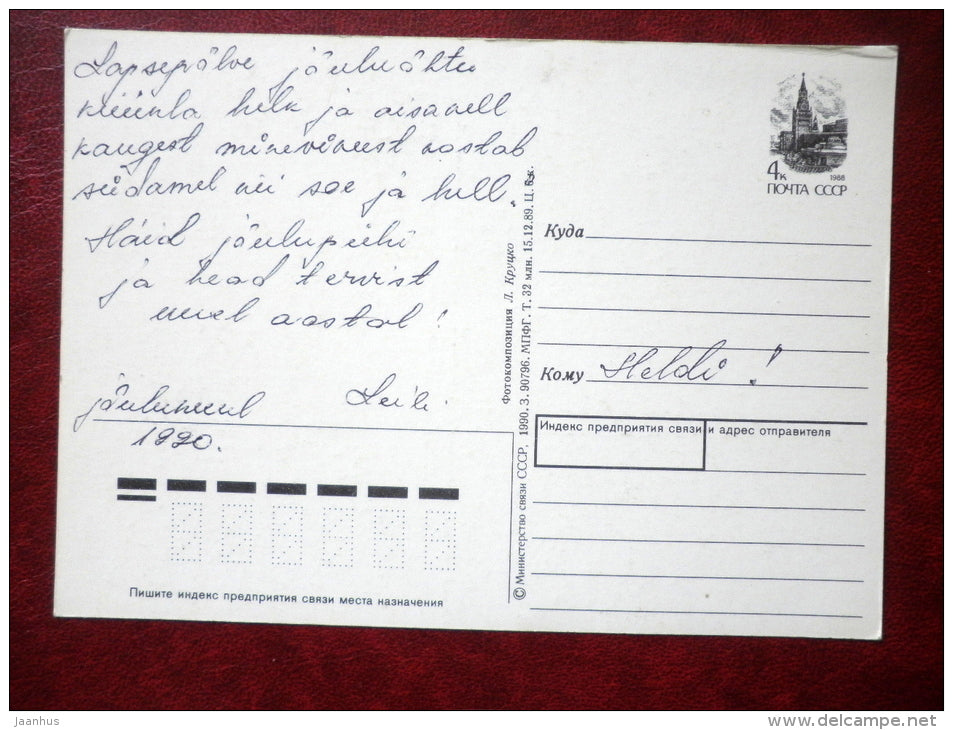 Lapsepõlve jõuluõhtu
küünla helk ja aisakell
kaugest minevikust vastab
südamel nii soe ja hell.
Häid jõulupühi
ja head tervist
uuel aastal!
jõulukuul Leili
1990.
Пишите индекс предприятия связи места назначения
© Министерство связи СССР, 1990. З. 90796. МПФГ. Т. 32 млн. 15.12.89. Ц. к.
Фотокомпозиция Л. Круцко
4к 1988
ПОЧТА СССР
Куда
Кому Heldi!
Индекс предприятия связи и адрес отправителя
Jaanhus
delcampe.net